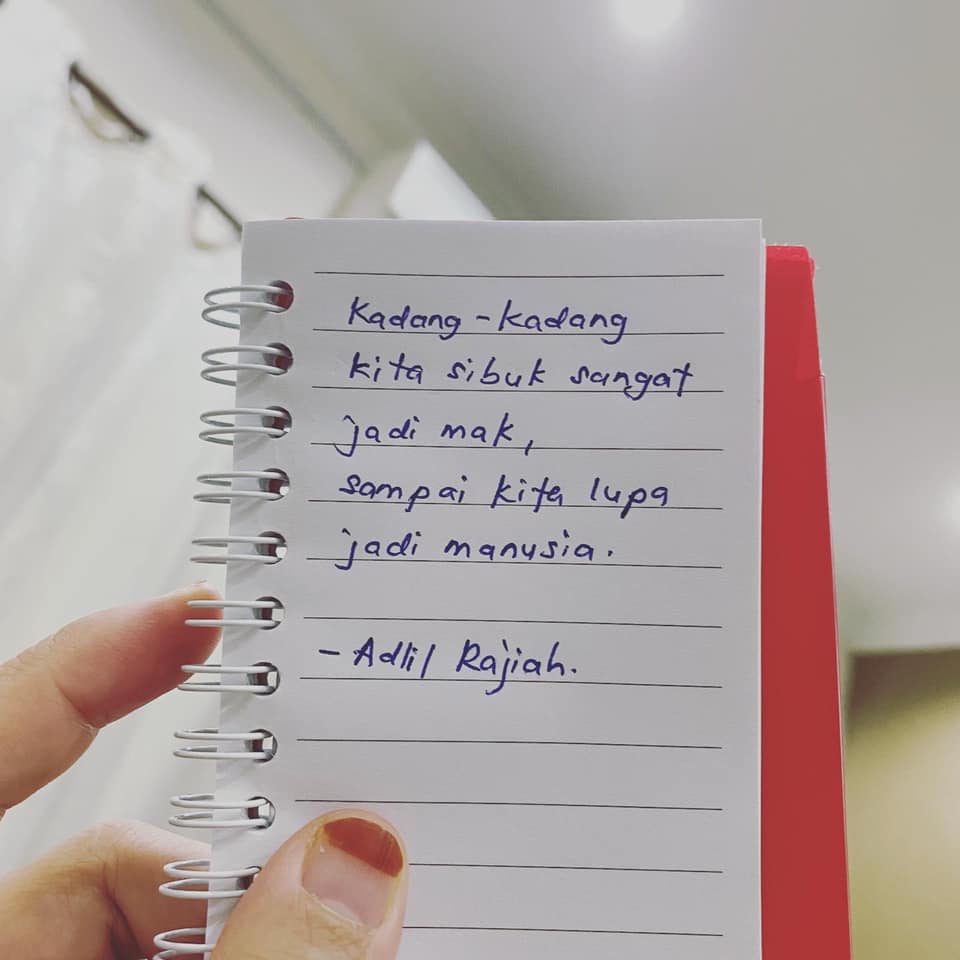 Kadang-kadang
kita sibuk sangat
jadi mak,
sampai kita lupa
jadi manusia.
- Adlil Rajiah.